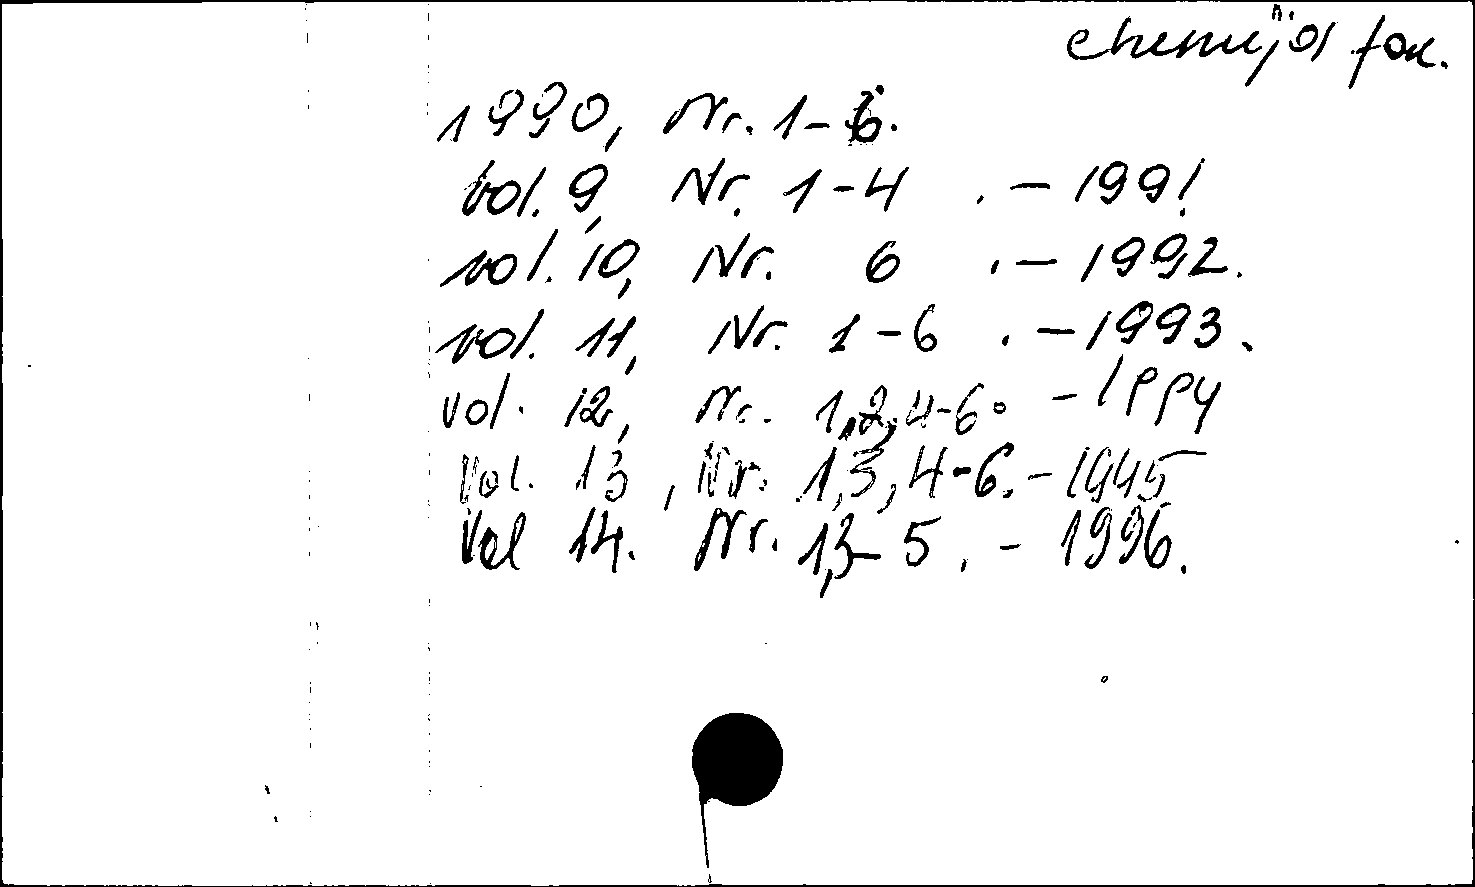 chemijos fak.
1990, Nr. 1-6.
vol. 9, Nr. 1-4 . - 1991.
vol. 10, Nr. 6 . - 1992.
vol. 11, Nr. 1-6 . - 1993.
vol. 12, Nr. 1,2,4-6. - 1994
Vol. 13, Nr. 1,3,4-6. - 1995
Vol 14. Nr. 1,3-5. - 1996.